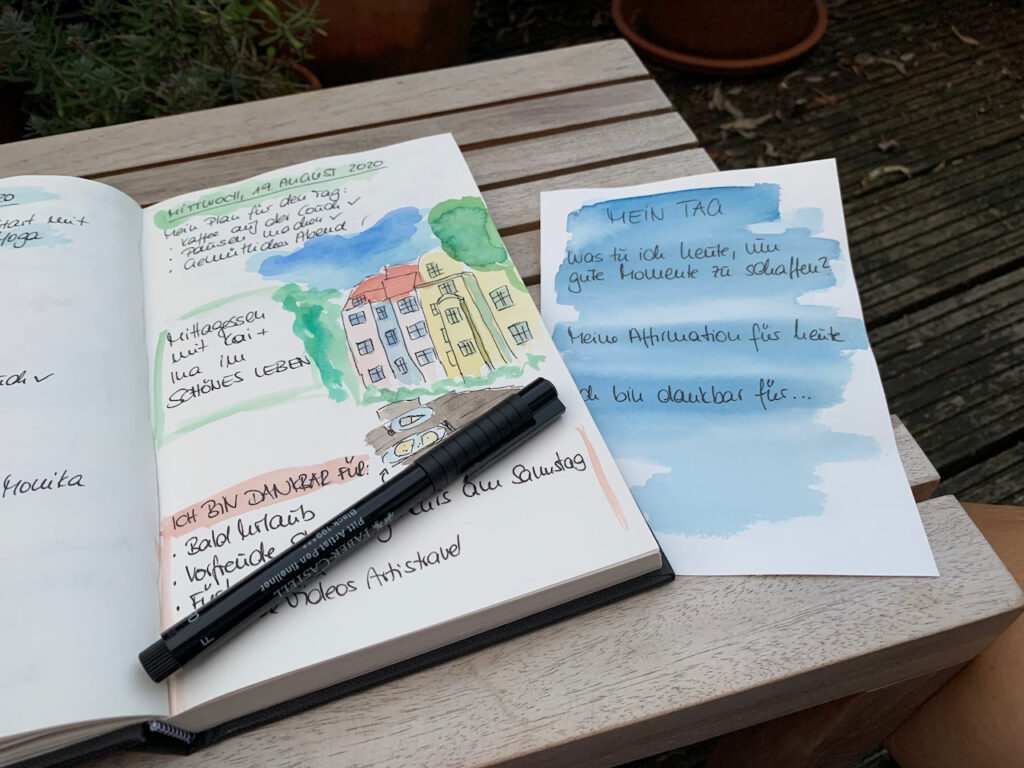 20
Start mit
Yoga
Monika
MITTWOCH, 19 AUGUST 2020
Mein Plan für den Tag:
· Kaffee auf der Couch ✓
· Pausen machen ✓
· Gemütlicher Abend !
Mittagessen
mit Kai +
Ina im
SCHÖNES LEBEN
ICH BIN DANKBAR FÜR:
· Bald Urlaub
· Vorfreude am Samstag
· Für Videos Artistravel
FABER-CASTELL
Pitt Artist Pen fineliner
Black 199***
F
MEIN TAG
was tu ich heute, um
gute Momente zu schaffen?
Meine Affirmation für heute
ch bin dankbar für...